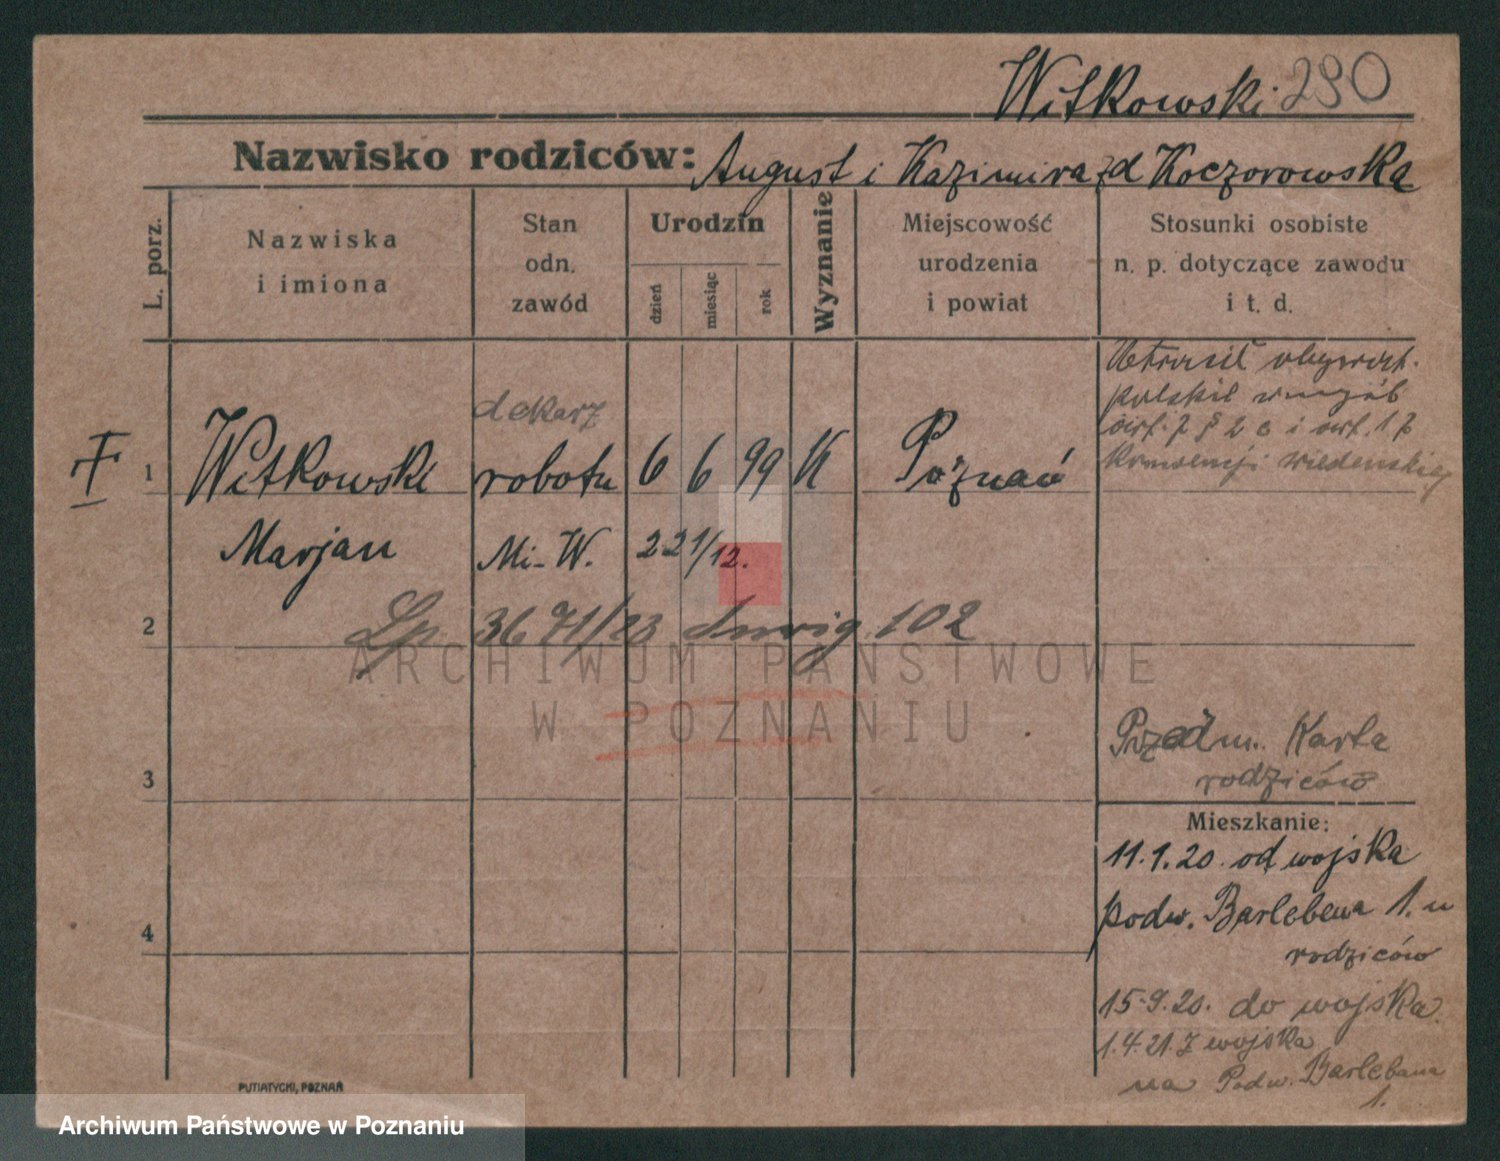 Witkowski 290
Nazwisko rodziców: August i Kazimira zd Koczorowska
L. porz.
Nazwiska
i imiona
Stan
odn.
zawód
Urodzin
dzień
miesiąc
rok
Wyznanie
Miejscowość
urodzenia
i powiat
Stosunki osobiste
n. p. dotyczące zawodu
i t. d.
Utracił obywat.
polskie
art. 7 § 2 c i art. 17
konwencji wiedeńskiej
dekarz
1 Witkowski robotn 6 6 99 K Poznań
Marjan Mi-W. 221/12.
2 Lp 3671/23 102
ARCHIWUM PAŃSTWOWE
W POZNANIU
Karta
rodziców
3
Mieszkanie:
11.1.20. od wojska
4 podw. Barlebena 1. u
rodziców
15.9.20. do wojska.
1.4.21. z wojska
na Podw. Barlebena
1.
PUTIATYCKI, POZNAŃ
Archiwum Państwowe w Poznaniu